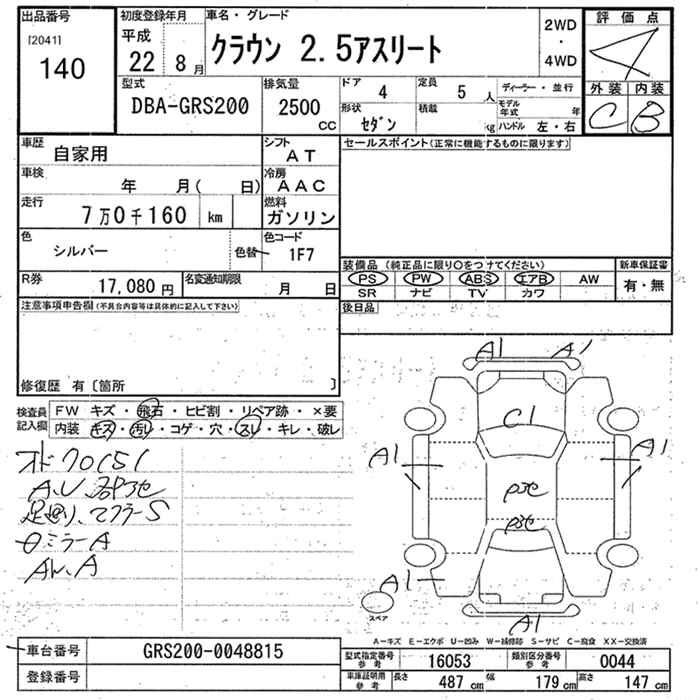 出品番号
[2041]
140
初度登録年月
平成
22年 8月
車名・グレード
クラウン 2.5アスリート
2WD
・
4WD
評価点
4
外装 内装
C B
型式
DBA-GRS200
排気量
2500
CC
ドア
4
定員
5 人
ディーラー・並行
形状
セダン
積載
kg
モデル年式 年
ハンドル 左・右
車歴
自家用
シフト
AT
セールスポイント(正常に機能するものに限ります)
車検
年 月( 日)
冷房
AAC
走行
7万0千160 km
燃料
ガソリン
色
シルバー
色替
色コード
1F7
R券
17,080円
名変通知期限
月 日
装備品 (純正品に限り○をつけてください)
PS PW ABS エアB AW
SR ナビ TV カワ
新車保証書
有・無
後日品
注意事項申告欄(不具合内容等は具体的に記入して下さい)
修復歴 有〔箇所 〕
検査員記入欄
FW キズ・飛石・ヒビ割・リペア跡・×要
内装 キズ・汚レ・コゲ・穴・スレ・キレ・破レ
オド70151
A.U
足廻り、マフラーS
ミラーA
A
A1 A1
C1
A1 A1
A1 A1
スペア
A-キズ E-エクボ U-凹み W-補修跡 S-サビ C-腐食 XX-交換済
車台番号
GRS200-0048815
登録番号
型式指定番号参考
16053
類別区分番号参考
0044
車庫証明用参考
長さ 487 cm 幅 179 cm 高さ 147 cm